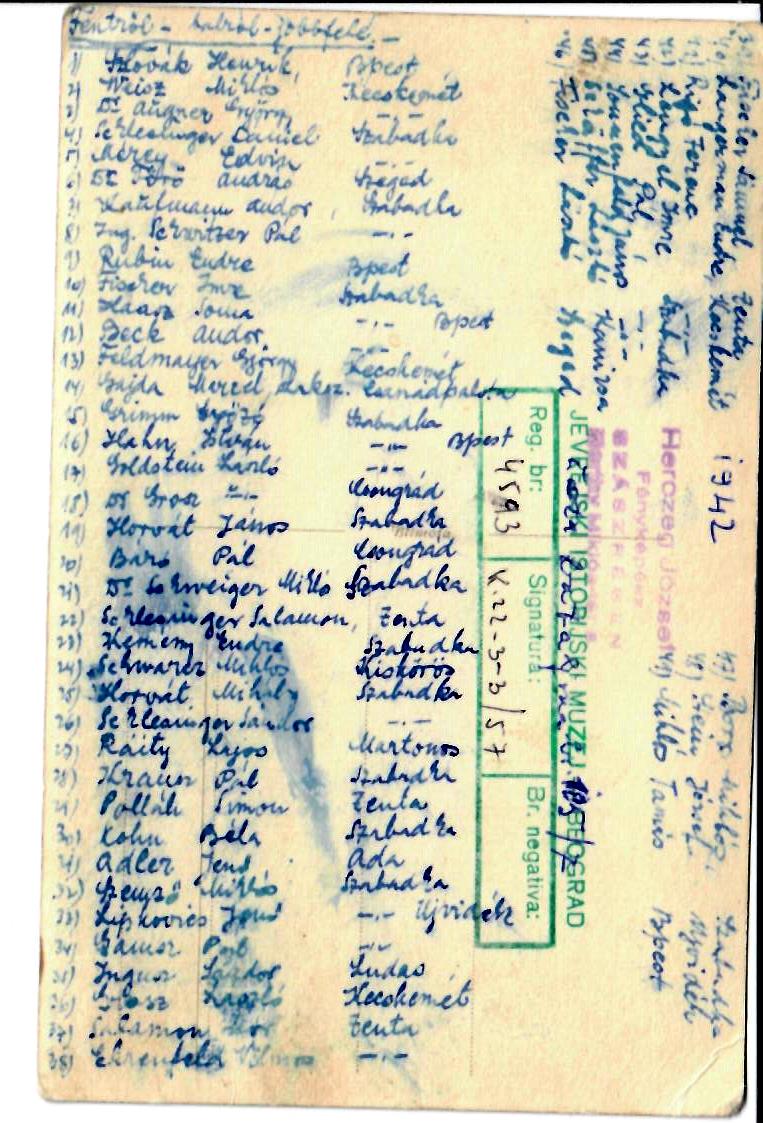 Fentről - balról - jobbfelé.
1) Szlovák Henrik, Bpest
2) Weisz Miklós Kecskemét
3) Dr Augner György -"-
4) Schlesinger Dániel Szabadka
5) Mérey Edvin -"-
6) Dr Törő András Szeged
7) Kaufmann Andor, Szabadka
8) Ing. Schwitzer Pál -"-
9) Rubin Endre Bpest
10) Fischer Imre Szabadka
11) Haasz Soma -"- Bpest
12) Beck Andor -"-
13) Feldmayer György Kecskemét
14) Gajda Marcel Csanádpalota
15) Grimm Szabadka
16) Hahn István -"- Bpest
17) Goldstein László -"-
18) Dr Grosz -"- Csongrád
19) Horvát János Szabadka
20) Baró Pál Csongrád
21) Dr Schweiger Miklós Szabadka
22) Schlesinger Salamon, Zenta
23) Kemény Endre Szabadka
24) Schwarcz Miklós Kiskőrös
25) Horvát Mihály Szabadka
26) Schlesinger Sándor -"-
27) Ráity Lajos Martonos
28) Kraus Pál Szabadka
29) Pollák Simon Zenta
30) Kohn Béla Szabadka
31) Adler Jenő Ada
32) Miklós Szabadka
33) Lipkovics Jenő -"- Ujvidék
34) -"-
35) Sándor Ludas
36) Grosz László Kecskemét
37) Salamon Mór Zenta
38) Ehrenfeld Vilmos -"-
39) Fischer Sámuel Zenta
40) Langerman Endre, Kecskemét
41) Ferenc -"-
42) Lengyel Imre Szabadka
43) Glied Pál -"-
44) Sonnenfeld János -"-
45) László Kanizsa
46) Fischer László Szeged
47) Miklós, Szabadka
48) Stein József Ujvidék
49) Miklós Tamás Bpest
1942
Herczeg József
Fényképész
SZÁSZRÉGEN
JEVREJSKI ISTORIJSKI MUZEJ BEOGRAD
Reg. br: 4593
Signatura: K.22-3-3/57
Br. negativa: